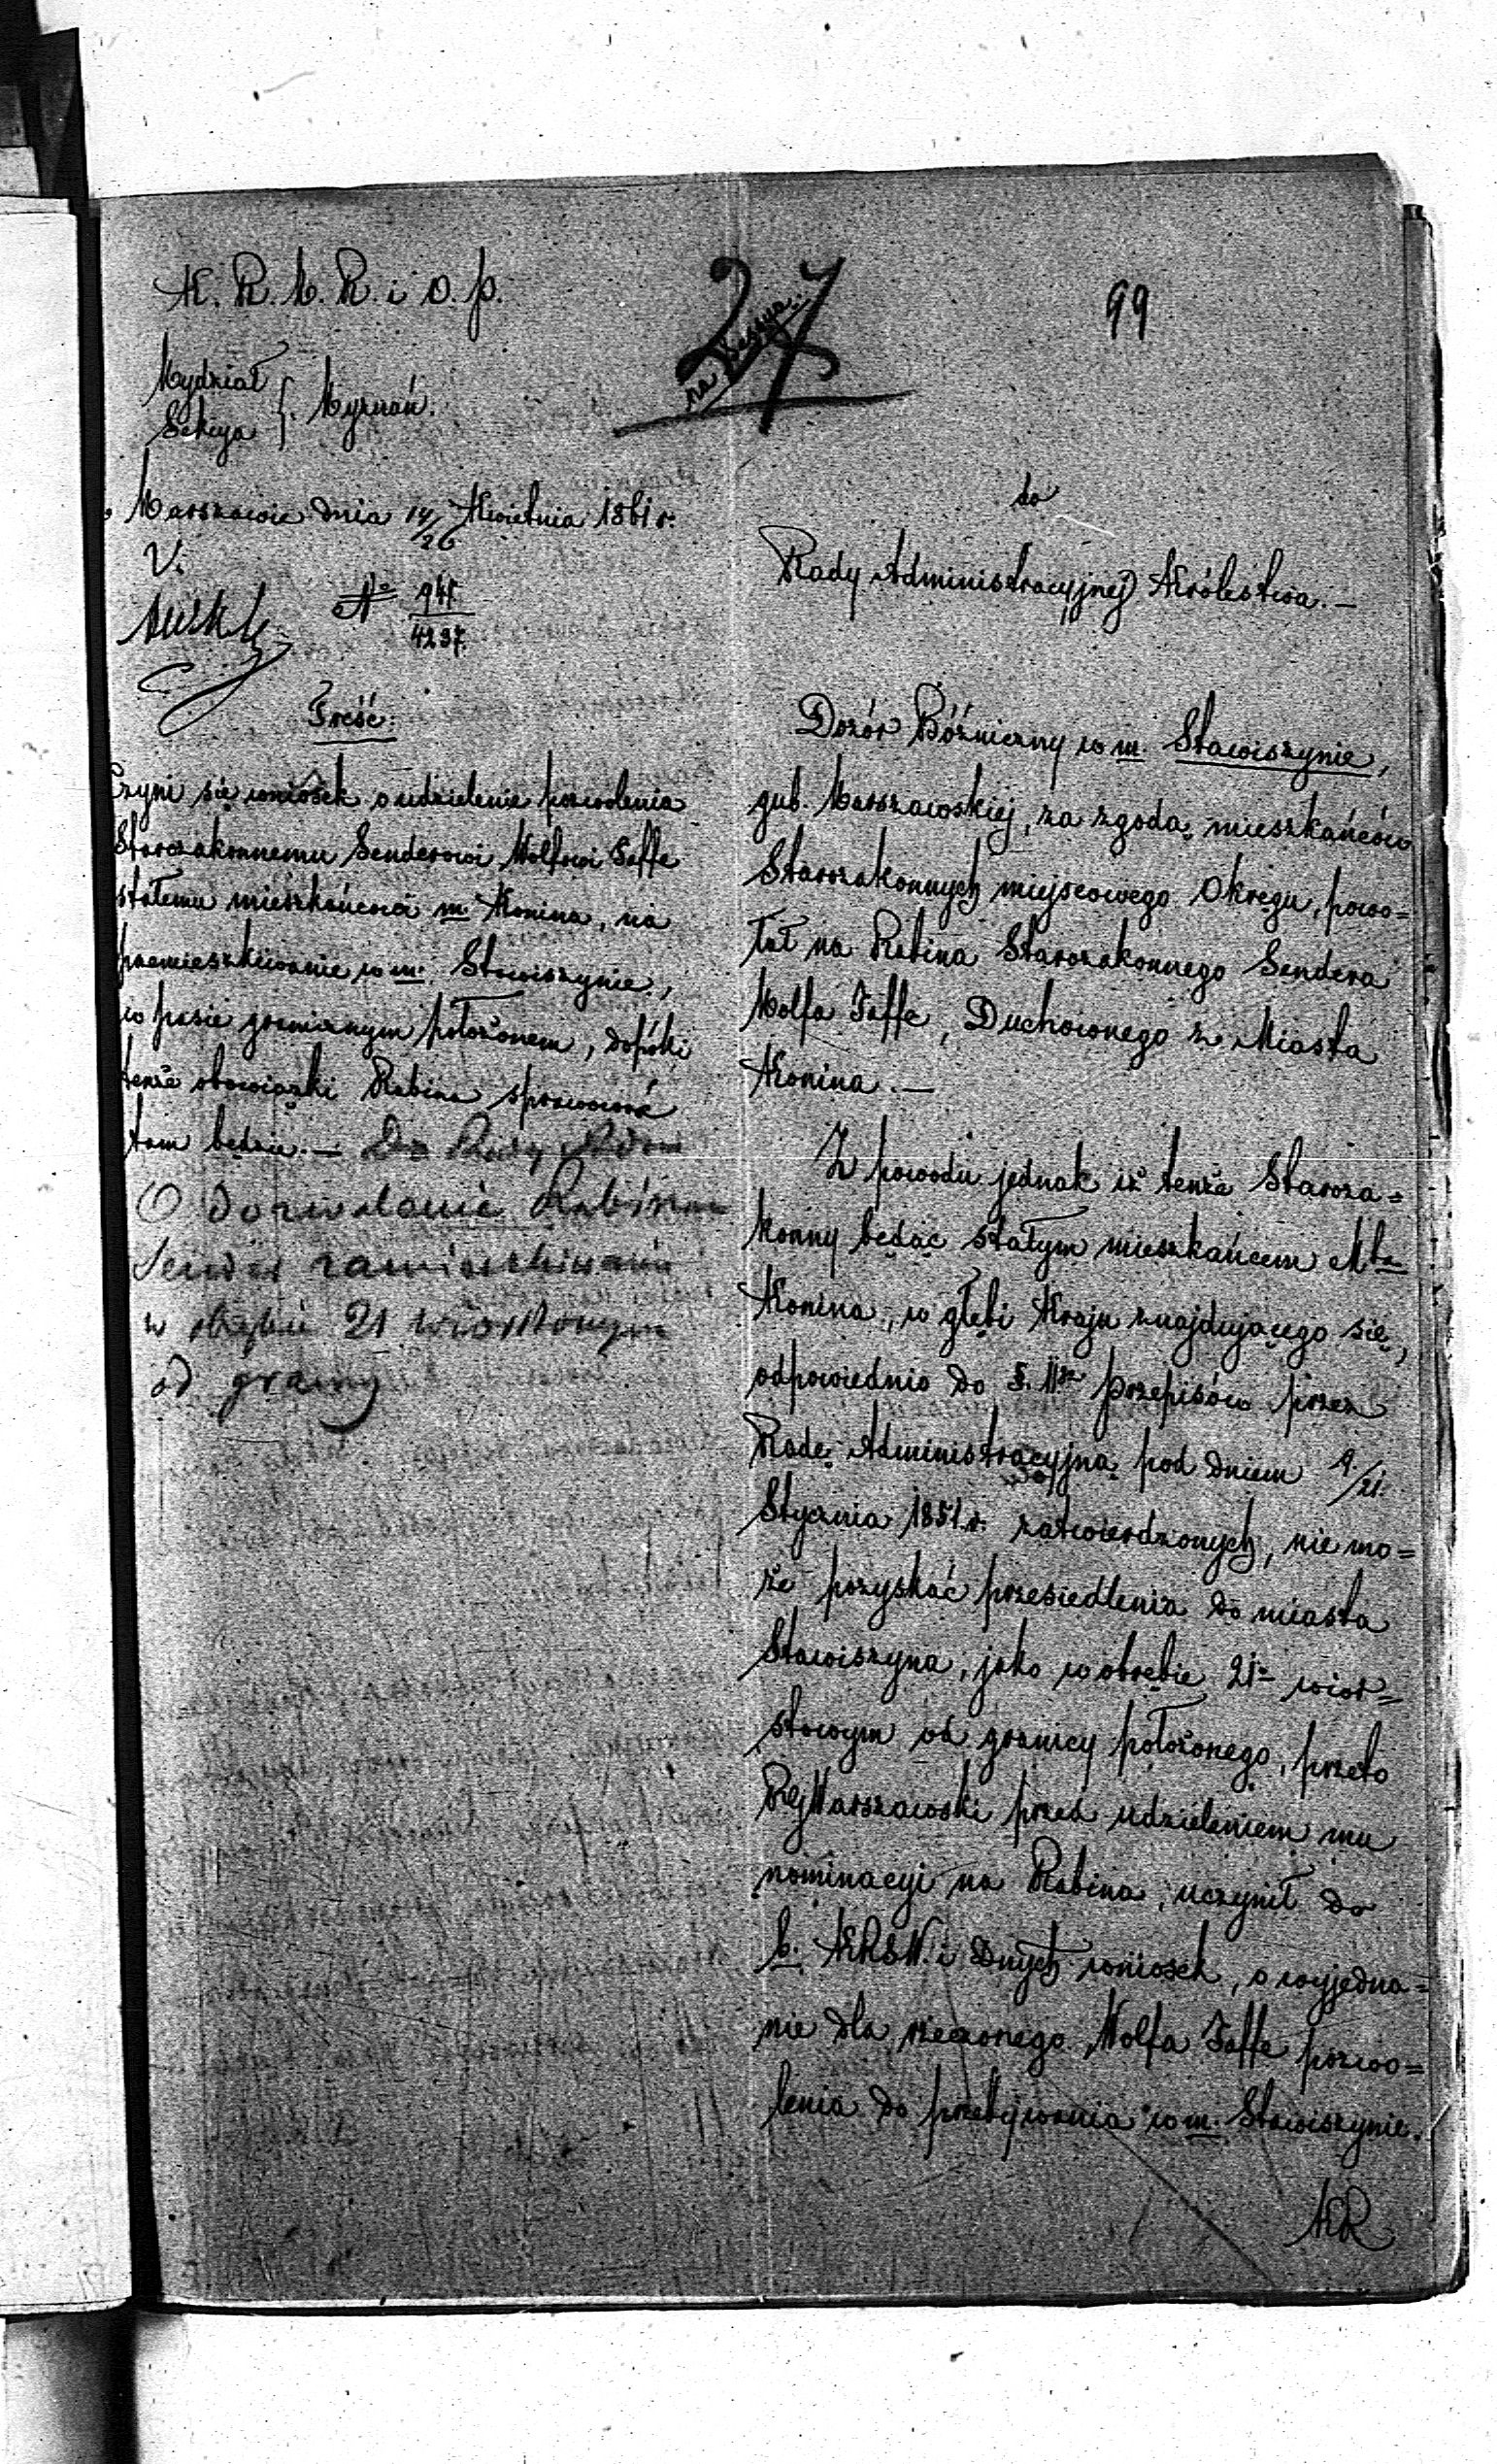 K. R. W. R. i O. P.
27
na Sessyą.
99
Wydział
Sekcya } Wyznań.
w Warszawie dnia 14/26 Kwietnia 1861 r.
V.
№ 941/4237.
do
Rady Administracyjnej Królestwa.—
Treść.
Czyni się wniosek o udzielenie pozwolenia
Starozakonnemu Senderowi Wolfowi Jaffe
stałemu mieszkańcowi m. Konina, na
zamieszkiwanie w m. Stawiszynie,
w pasie granicznym położonem, dopóki
tenże obowiązki Rabina sprawować
tam będzie.—
O dozwolenie Rabinowi
zamieszkiwania
w obrębie 21 wiorstowym
od granicy
Dozór Bóżniczny w m. Stawiszynie,
gub. Warszawskiej, za zgodą mieszkańców
Starozakonnych miejscowego Okręgu, powo=
łał na Rabina Starozakonnego Sendera
Wolfa Jaffe, Duchownego z Miasta
Konina.—
Z powodu jednak iż tenże Staroza=
konny będąc stałym mieszkańcem Mta
Konina, w głębi Kraju znajdującego się,
odpowiednio do §. 11go przepisów przez
Radę Administracyjną pod dniem 9/21
Stycznia 1851 r. zatwierdzonych, nie mo=
że pozyskać przesiedlenia do miasta
Stawiszyna, jako w obrębie 21= wior=
stowym od granicy położonego, przeto
RgWarszawski przed udzieleniem mu
nominacyi na Rabina, uczynił do
b. KRSW. i Dnych wniosek, o wyjedna=
nie dla rzeczonego Wolfa Jaffe pozwo=
lenia do przebywania w m. Stawiszynie.
KR